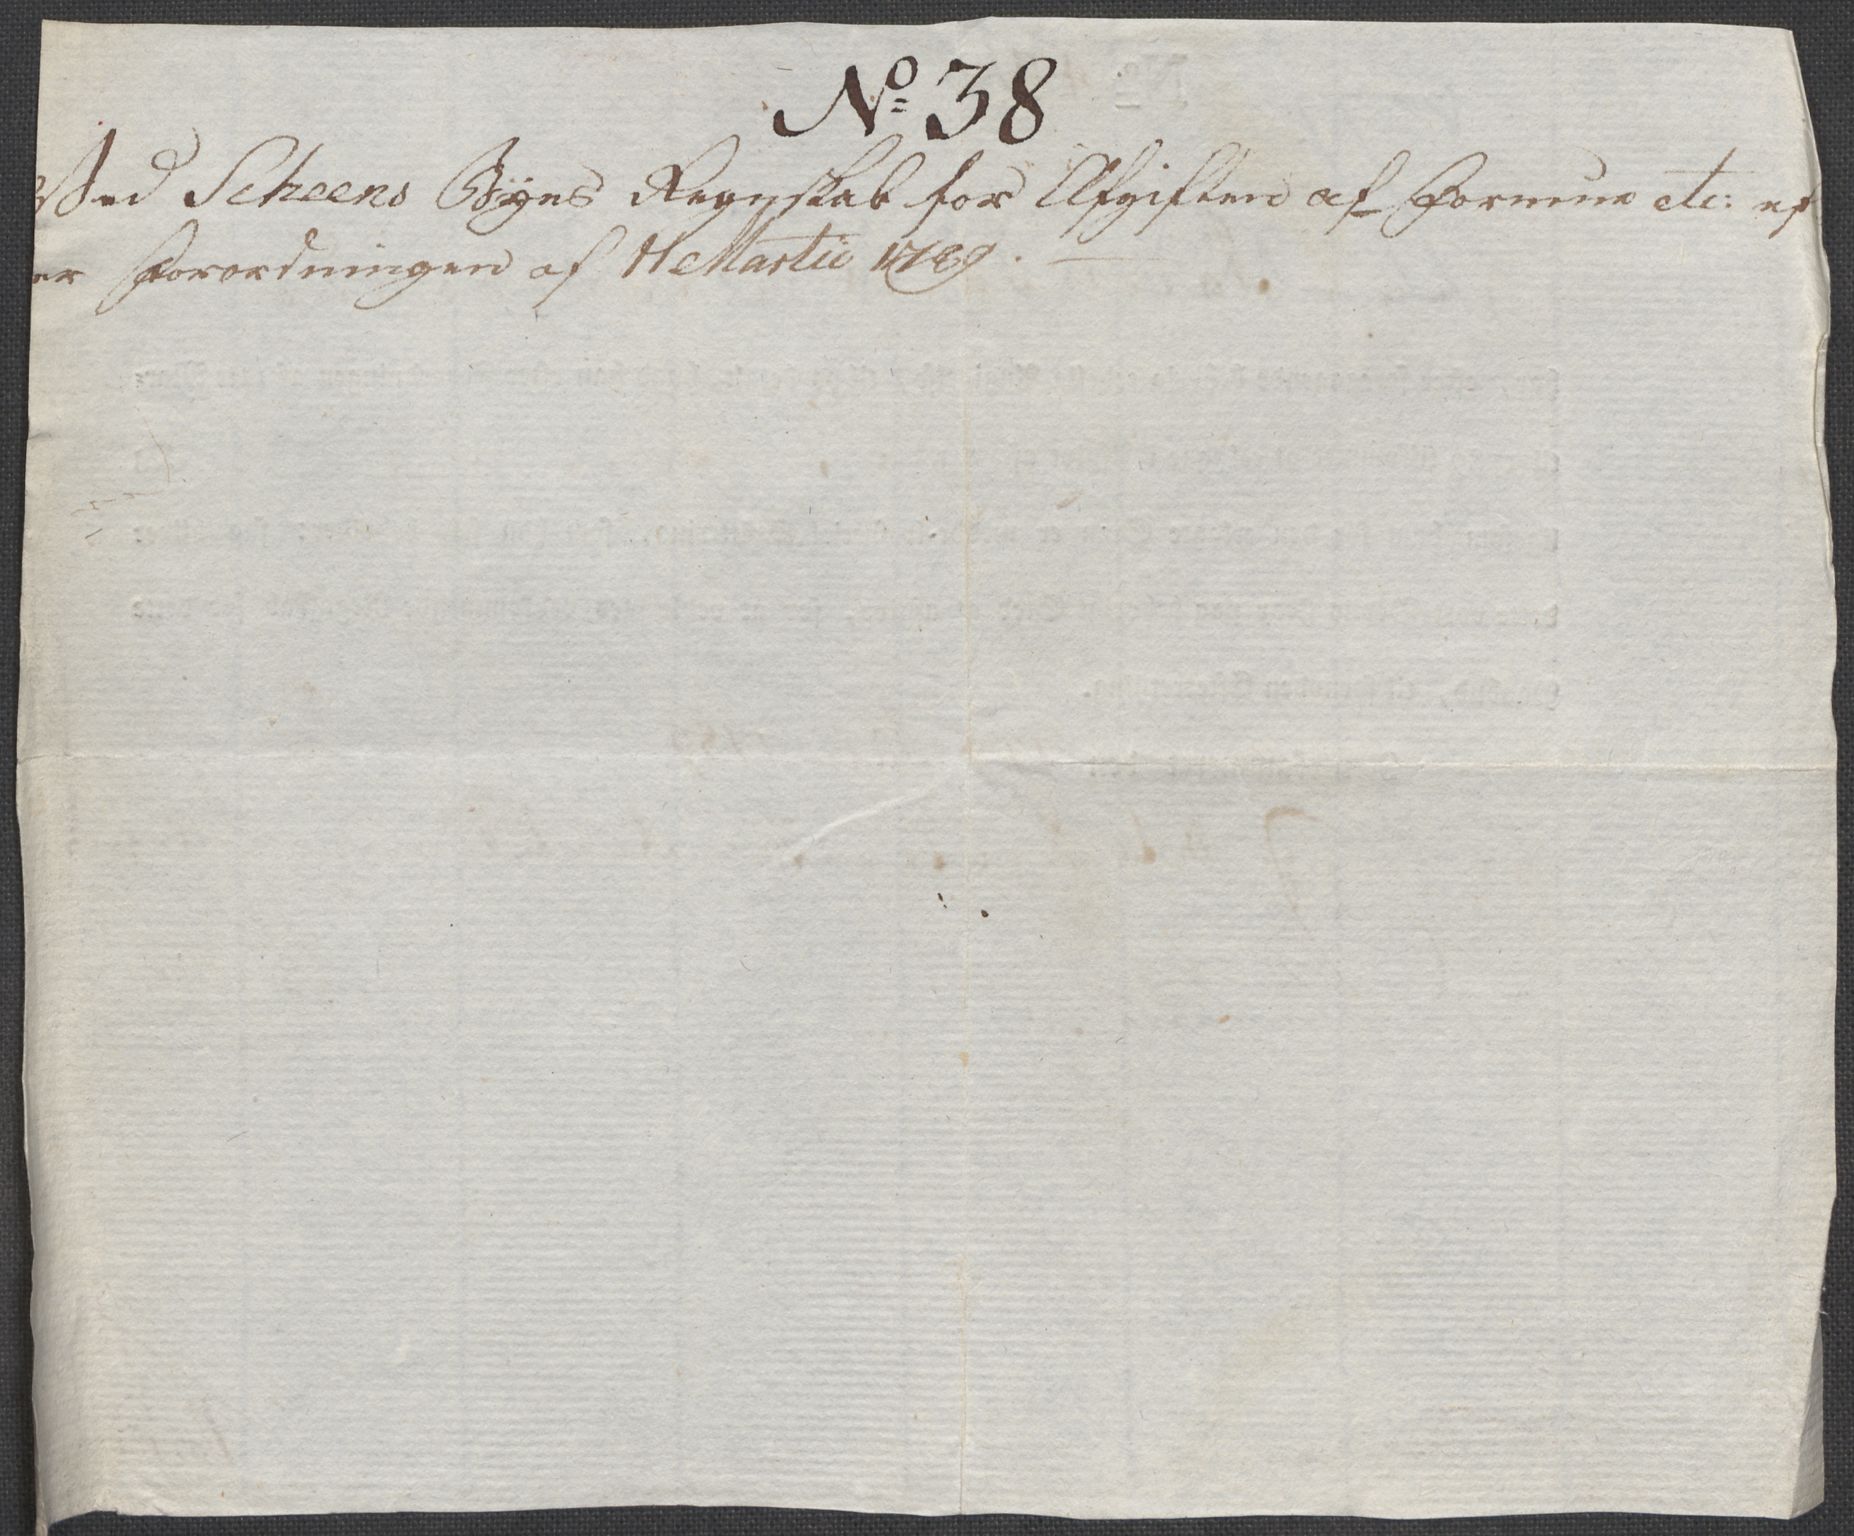 No 38
Ved Scheens Byes Regnskab for Afgiften af Formue etc: ef
er Forordningen af 11 Martii 1789.